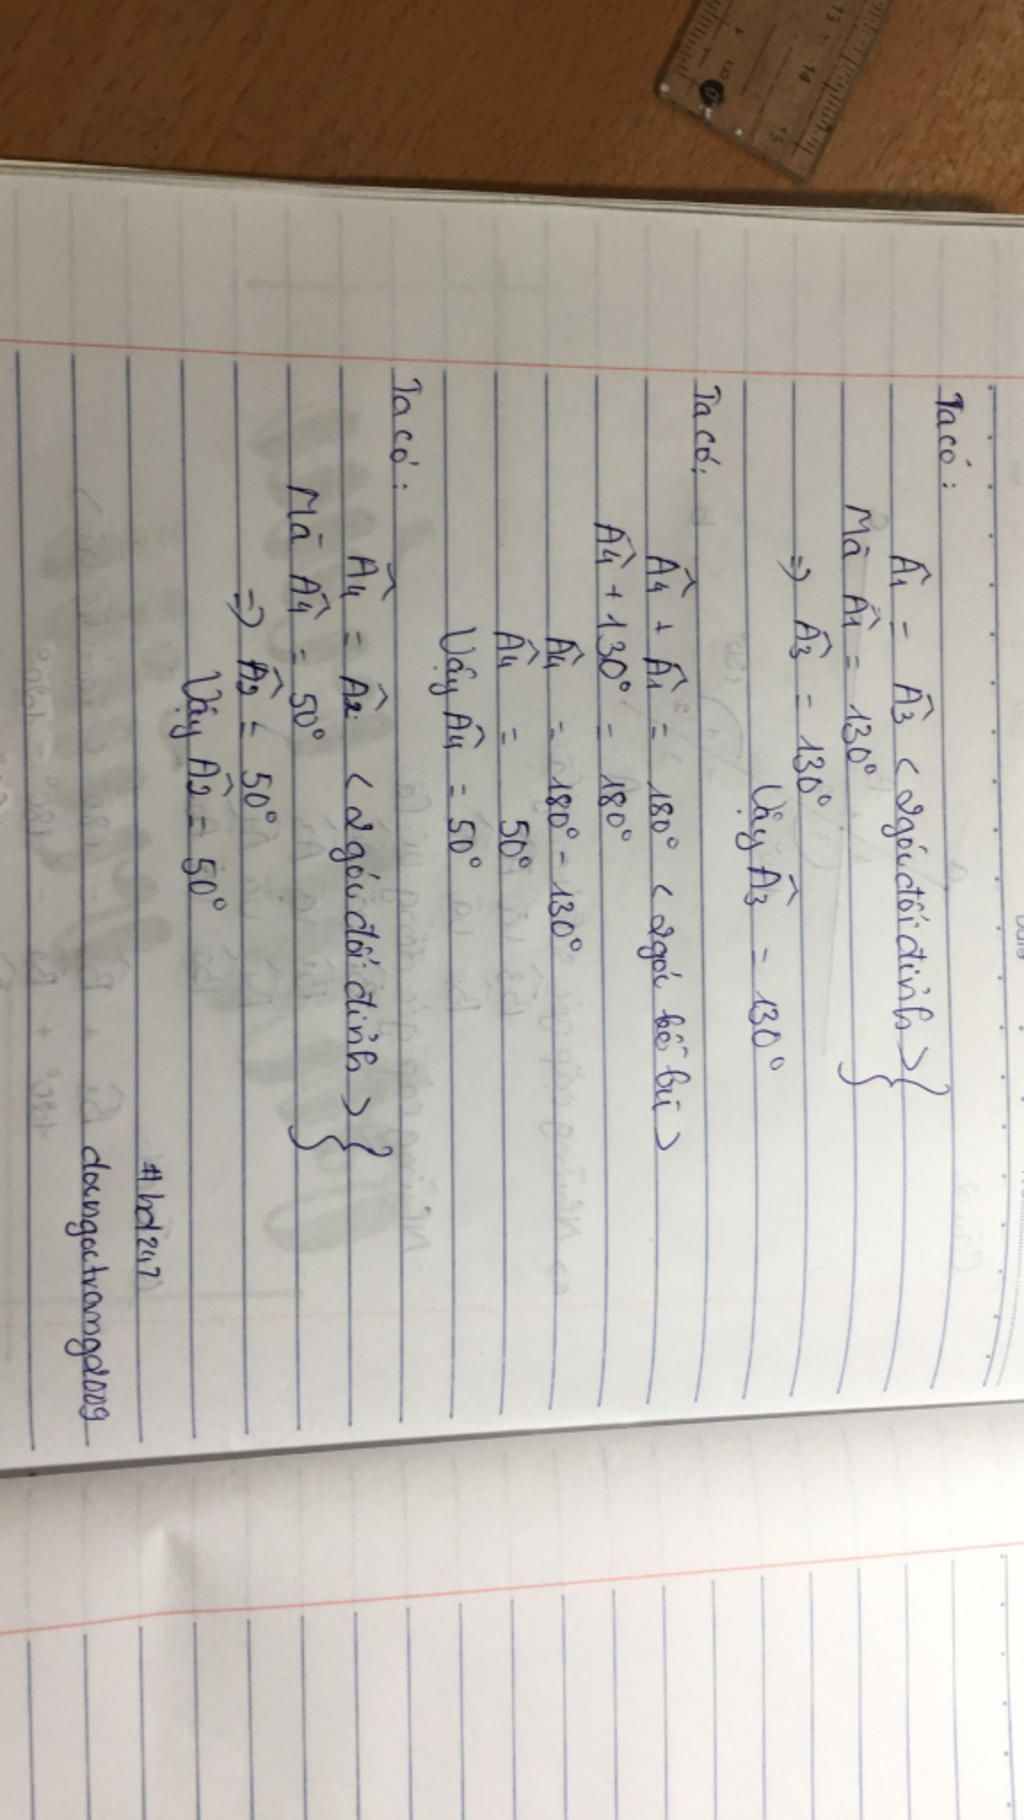 Ta có:
Â1 = Â3 < 2 góc đối đỉnh >}
Mà Â1 = 130°
=> Â3 = 130°
Vậy Â3 = 130°
Ta có:
Â4 + Â1 = 180° < 2 góc kề bù >
Â4 + 130° = 180°
Â4 = 180° - 130°
Â4 = 50°
Vậy Â4 = 50°
Ta có:
Â4 = Â2 < 2 góc đối đỉnh >}
Mà Â4 = 50°
=> Â2 = 50°
Vậy Â2 = 50°
#hd247
doangoctrang2009